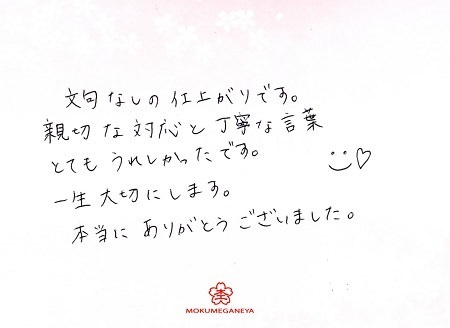 文句なしの仕上がりです。
親切な対応と丁寧な言葉
とてもうれしかったです。
一生大切にします。
本当にありがとうございました。
MOKUMEGANEYA